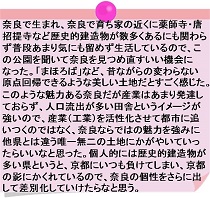 奈良で生まれ、奈良で育ち家の近くに薬師寺・唐
招提寺など歴史的建造物が数多くあるにも関わら
ず普段あまり気にも留めず生活しているので、こ
の公園を聞いて奈良を見つめ直すいい機会に
なった。「まほろば」など、昔ながらの変わらない
原点回帰できるような美しい土地だとすごく感じた。
このような魅力ある奈良だが産業はあまり発達し
ておらず、人口流出が多い田舎というイメージが
強いので、産業（工業）を活性化させて都市に追
いつくのではなく、奈良ならではの魅力を強みに
他県とは違う唯一無二の土地にかがやいていっ
たらいいなと思った。個人的には歴史的建造物が
多い県というと、京都にいつも負けてしまい、京都
の影にかくれているので、奈良の個性をさらに出
して差別化していけたらなと思う。